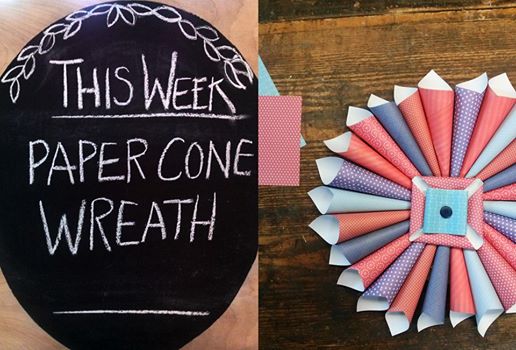 THIS WEEK
PAPER CONE
WREATH